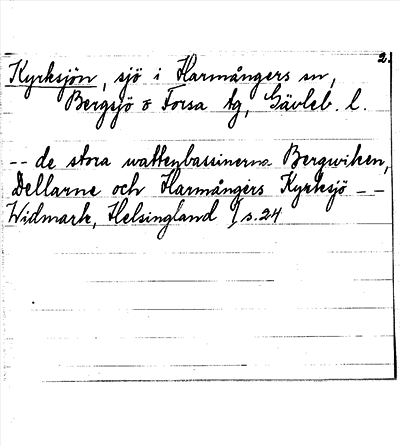 2.
Kyrksjön, sjö i Harmångers sn,
Bergsjö o Forsa tg, Gävleb. l.
-- de stora wattenbassinerna Bergwiken,
Dellarne och Harmångers Kyrksjö --
Widmark, Helsingland I s. 24